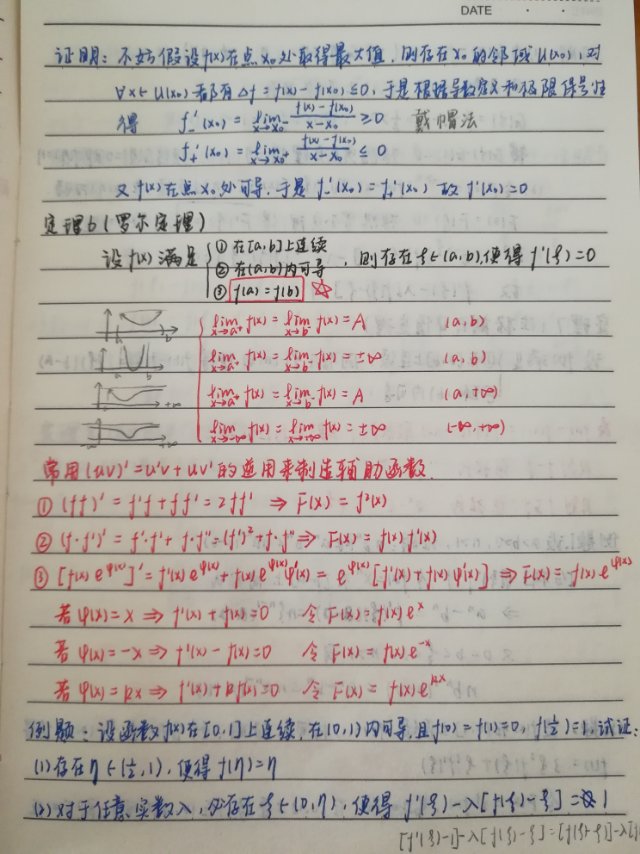 DATE
证明：不妨假设f(x)在点x₀处取得最大值，则存在x₀的邻域U(x₀)，对
∀x∈U(x₀)都有Δf=f(x)-f(x₀)≤0，于是根据导数定义和极限保号性
得 f₋'(x₀)=lim_{x→x₀⁻} (f(x)-f(x₀))/(x-x₀) ≥0 戴帽法
f₊'(x₀)=lim_{x→x₀⁺} (f(x)-f(x₀))/(x-x₀) ≤0
又f(x)在点x₀处可导，于是f₋'(x₀)=f₊'(x₀) 故f'(x₀)=0
定理6(罗尔定理)
设f(x)满足 ①在[a,b]上连续
②在(a,b)内可导，则存在ξ∈(a,b),使得f'(ξ)=0
③f(a)=f(b) ☆
a b lim_{x→a⁺} f(x)=lim_{x→b⁻} f(x)=A (a,b)
a b lim_{x→a⁺} f(x)=lim_{x→b⁻} f(x)=±∞ (a,b)
a +∞ lim_{x→a⁺} f(x)=lim_{x→b⁻} f(x)=A (a,+∞)
lim_{x→-∞} f(x)=lim_{x→+∞} f(x)=±∞ (-∞,+∞)
常用(uv)'=u'v+uv'的逆用来制造辅助函数.
①(ff)'=f'f+ff'=2ff' ⇒ F(x)=f²(x)
②(f·f')'=f'·f'+f·f''=(f')²+f·f''⇒ F(x)=f(x)f'(x)
③[f(x)e^{φ(x)}]'=f'(x)e^{φ(x)}+f(x)e^{φ(x)}φ'(x)=e^{φ(x)}[f'(x)+f(x)φ'(x)]⇒F(x)=f(x)e^{φ(x)}
若φ(x)=x⇒f'(x)+f(x)=0 令F(x)=f(x)eˣ
若φ(x)=-x⇒f'(x)-f(x)=0 令F(x)=f(x)e⁻ˣ
若φ(x)=kx⇒f'(x)+kf(x)=0 令F(x)=f(x)e^{kx}
例题：设函数f(x)在[0,1]上连续，在(0,1)内可导，且f(0)=f(1)=0，f(½)=1，试证：
(1)存在η∈(½,1)，使得f(η)=η
(2)对于任意实数λ，必存在ξ∈(0,η)，使得f'(ξ)-λ[f(ξ)-ξ]=1
[f'(ξ)-1]-λ[f(ξ)-ξ]=[f(ξ)-ξ]'-λ[f